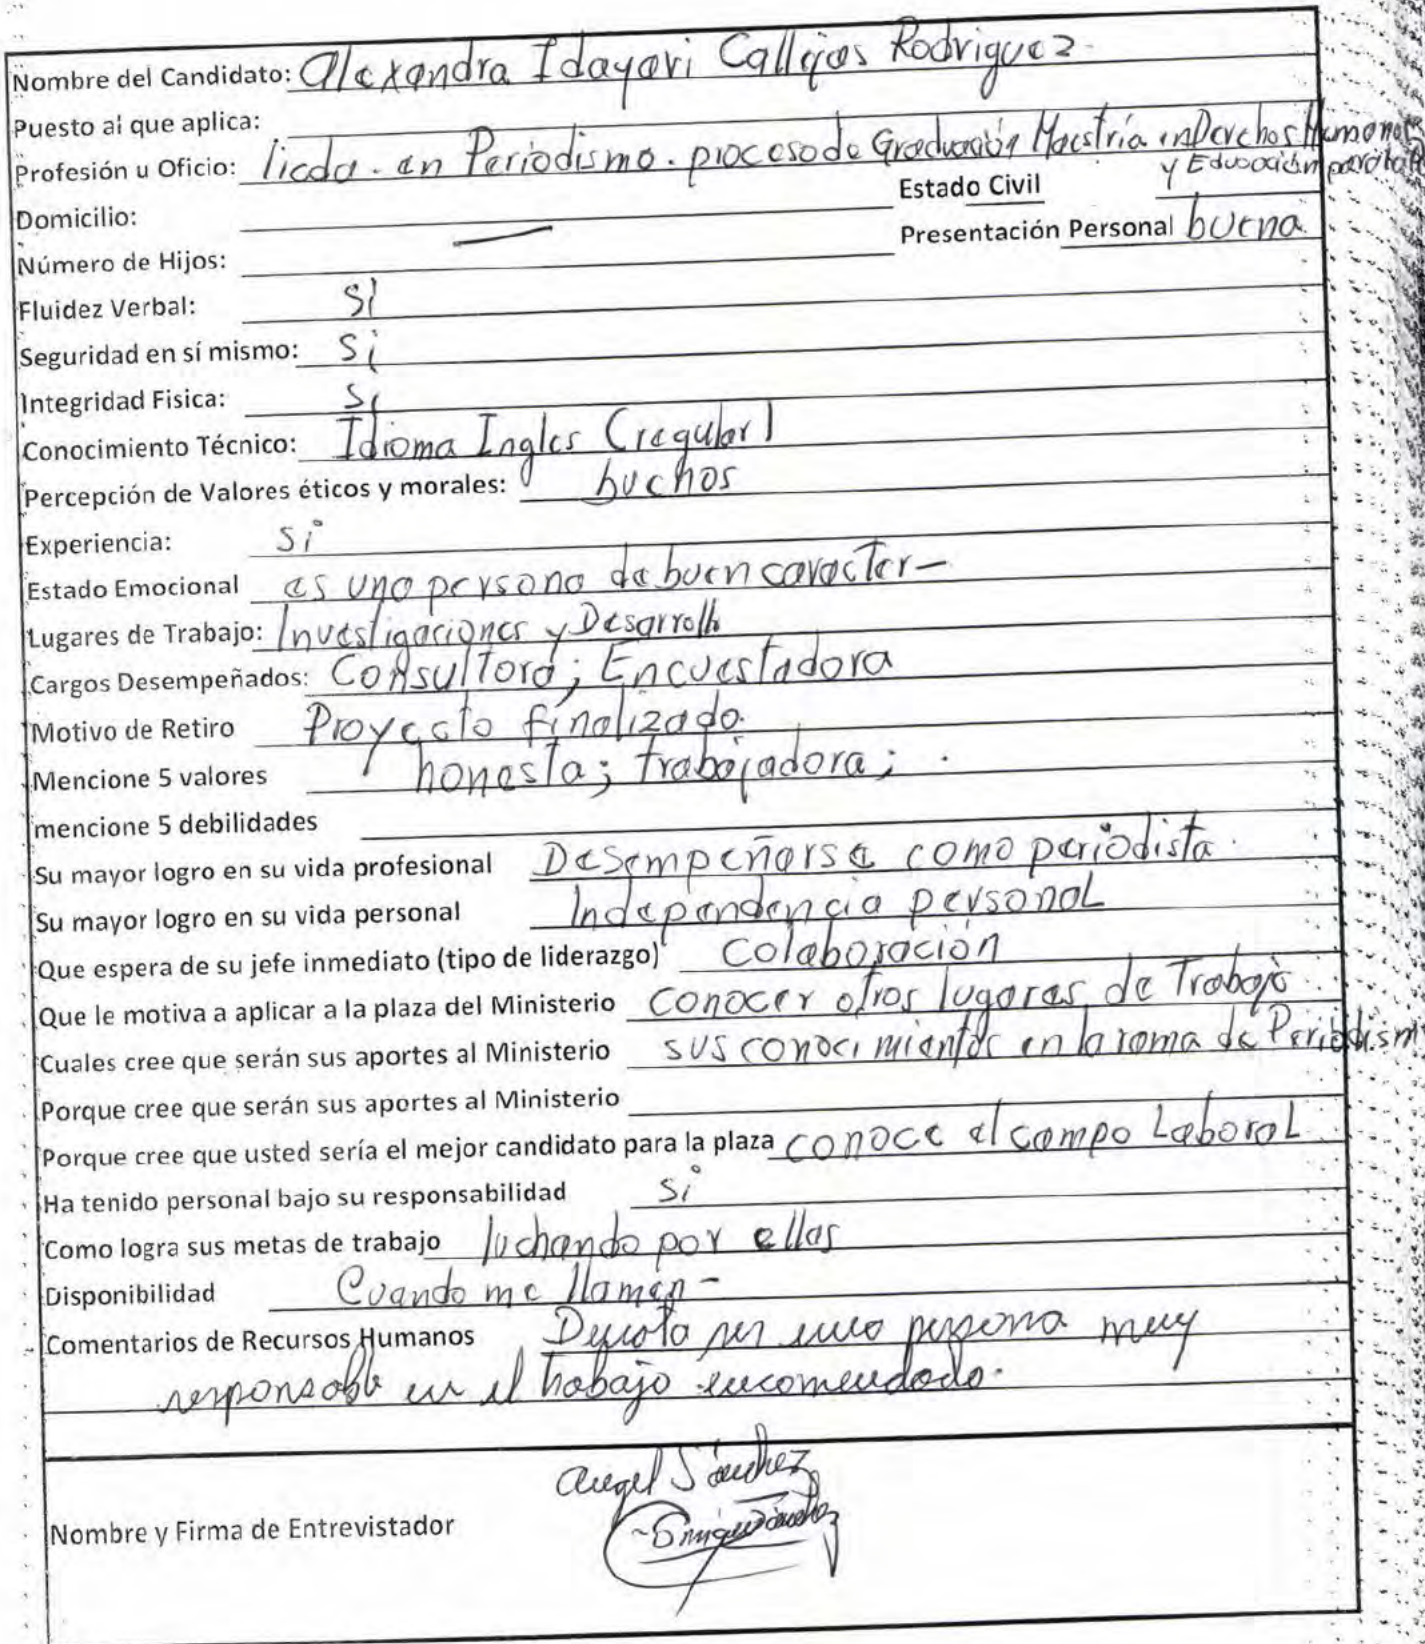 Nombre del Candidato: Alexandra Idayari Callejas Rodriguez
Puesto al que aplica:
Profesión u Oficio: licda. en Periodismo. proceso de Graduación Maestría en Derechos Humanos
y Educación para la
Estado Civil
Domicilio:
Presentación Personal buena
Número de Hijos:
Fluidez Verbal: Si
Seguridad en sí mismo: Si
Integridad Fisica: Si
Conocimiento Técnico: Idioma Ingles (regular)
Percepción de Valores éticos y morales: buenos
Experiencia: Si
Estado Emocional es una persona de buen caracter-
Lugares de Trabajo: Investigaciones y Desarrollo
Cargos Desempeñados: Consultora; Encuestadora
Motivo de Retiro Proyecto finalizado.
Mencione 5 valores honesta; trabajadora;
mencione 5 debilidades
Su mayor logro en su vida profesional Desempeñarse como periodista.
Su mayor logro en su vida personal Independencia personal
Que espera de su jefe inmediato (tipo de liderazgo) Colaboración
Que le motiva a aplicar a la plaza del Ministerio conocer otros lugares de Trabajo
Cuales cree que serán sus aportes al Ministerio sus conocimientos en la rama de Periodism
Porque cree que serán sus aportes al Ministerio
Porque cree que usted sería el mejor candidato para la plaza conoce el campo Laboral
Ha tenido personal bajo su responsabilidad Si
Como logra sus metas de trabajo luchando por ellas
Disponibilidad Cuando me llamen-
Comentarios de Recursos Humanos Denota ser una persona muy
responsable en el trabajo encomendado.
Angel Sánchez
Nombre y Firma de Entrevistador